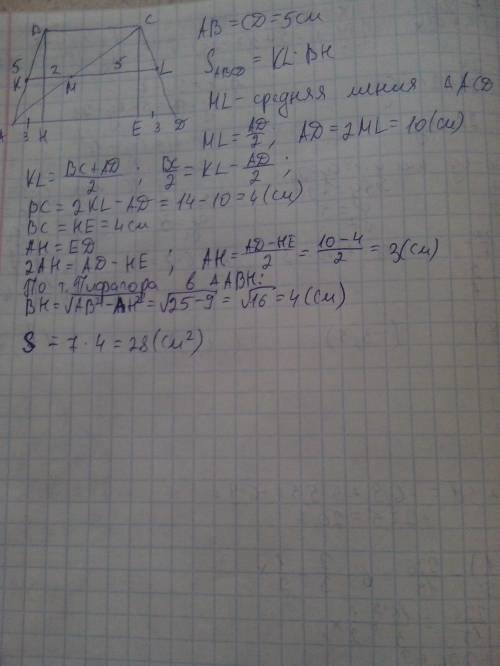 B C
5 2 5
K M L
A 3 H E 3 D
AB = CD = 5см
S_ABCD = KL · BH
ML - средняя линия △ACD
ML = AD/2, AD = 2ML = 10(см)
KL = (BC+AD)/2 ; BC/2 = KL - AD/2 ;
BC = 2KL - AD = 14 - 10 = 4(см)
BC = HE = 4см
AH = ED
2AH = AD - HE ; AH = (AD-HE)/2 = (10-4)/2 = 3(см)
По т. Пифагора в △ABH:
BH = √(AB² - AH²) = √(25-9) = √16 = 4(см)
S = 7 · 4 = 28(см²)